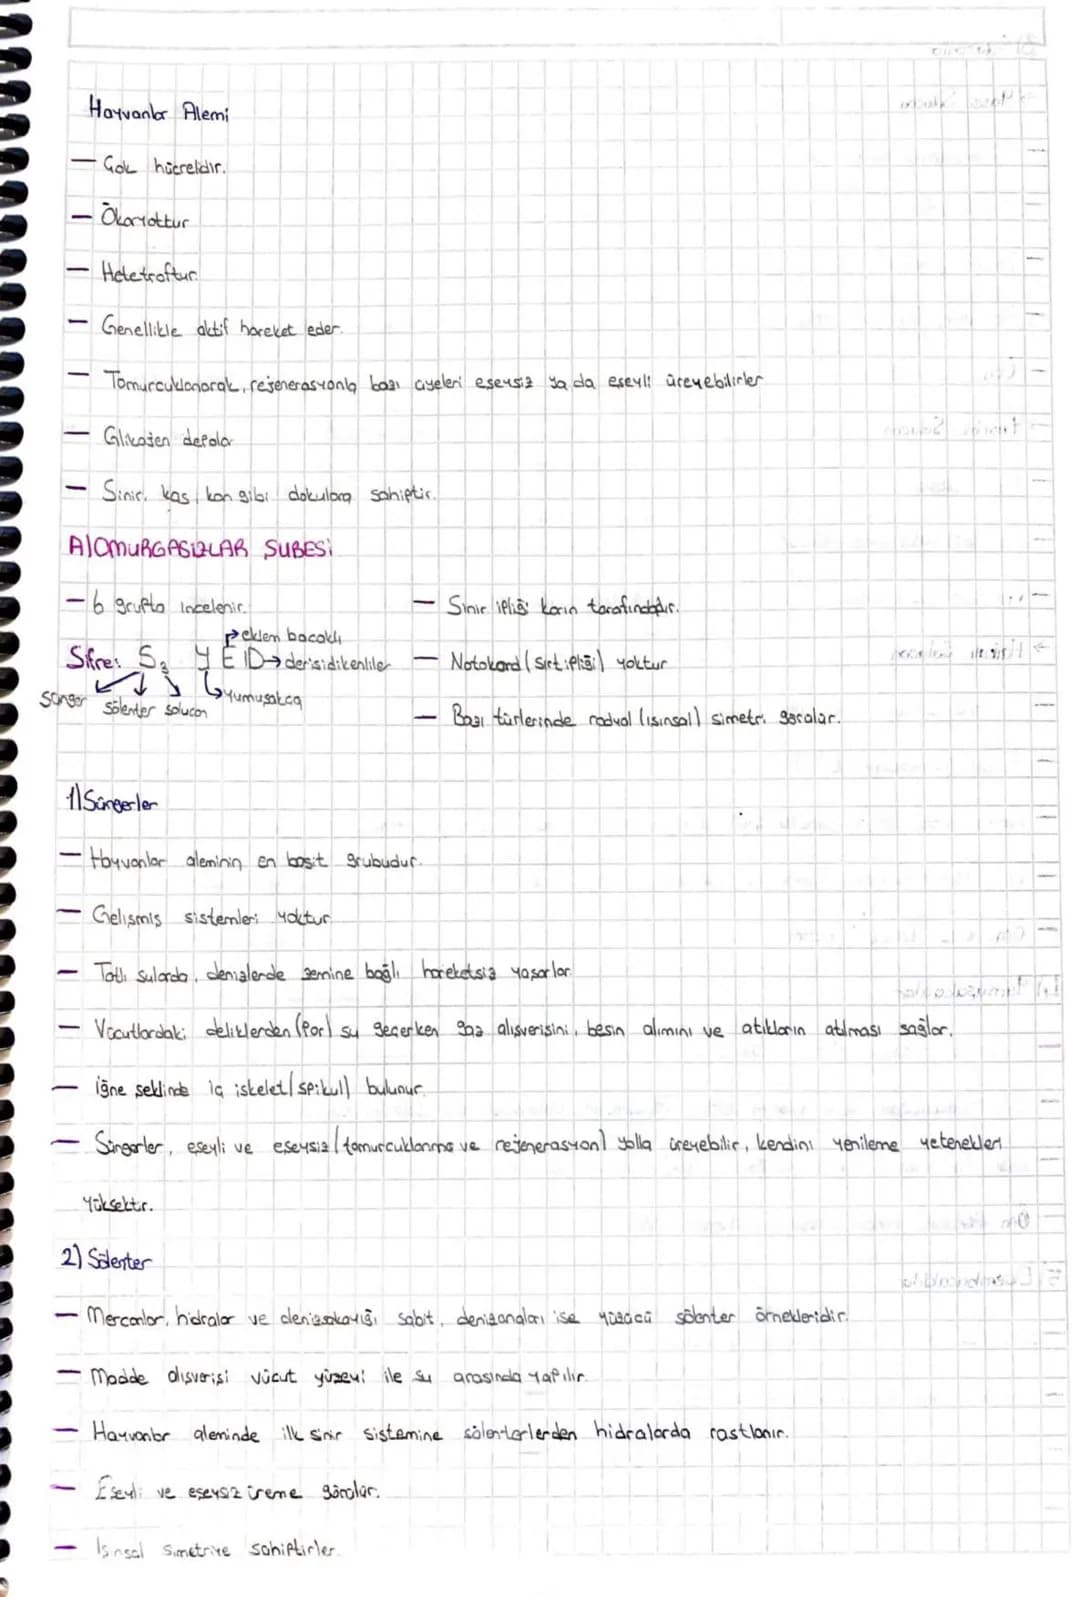 Hayvanlar Alemi
— Çok hücrelidir.
— Ökaryottur
— Hetetroftur.
— Genellikle aktif hareket eder.
— Tomurcuklanarak, rejenerasyonla bazı üyeleri eşeysiz ya da eşeyli üreyebilirler
— Glikojen depolar
— Sinir, kas, kan gibi dokulara sahiptir.
A) OMURGASIZLAR ŞUBESİ
— 6 grupta incelenir.
— Sinir ipliği karın tarafındadır.
eklem bacaklı
Şifre: S₃ Y E D → derisidikenliler
— Notokord (sırt ipliği) yoktur
sünger sölenter solucan yumuşakça
— Bazı türlerinde radyal (ışınsal) simetri görülür.
1) Süngerler
— Hayvanlar aleminin en basit grubudur.
— Gelişmiş sistemleri yoktur
— Tatlı sularda, denizlerde zemine bağlı hareketsiz yaşarlar
— Vücutlardaki deliklerden (Por) su geçerken gaz alışverişini, besin alımını ve atıkların atılması sağlar.
— iğne şeklinde iç iskelet (spikul) bulunur.
— Süngerler, eşeyli ve eşeysiz (tomurcuklanma ve rejenerasyon) yolla üreyebilir, kendini yenileme yetenekleri
yüksektir.
2) Sölenter
— Mercanlar, hidralar ve denizşakayığı sabit, denizanaları ise yüzücü sölenter örnekleridir.
— Madde alışverişi vücut yüzeyi ile su arasında yapılır.
— Hayvanlar aleminde ilk sinir sistemine sölenterlerden hidralarda rastlanır.
— Eşeyli ve eşeysiz üreme görülür.
— Işınsal simetriye sahiptirler.